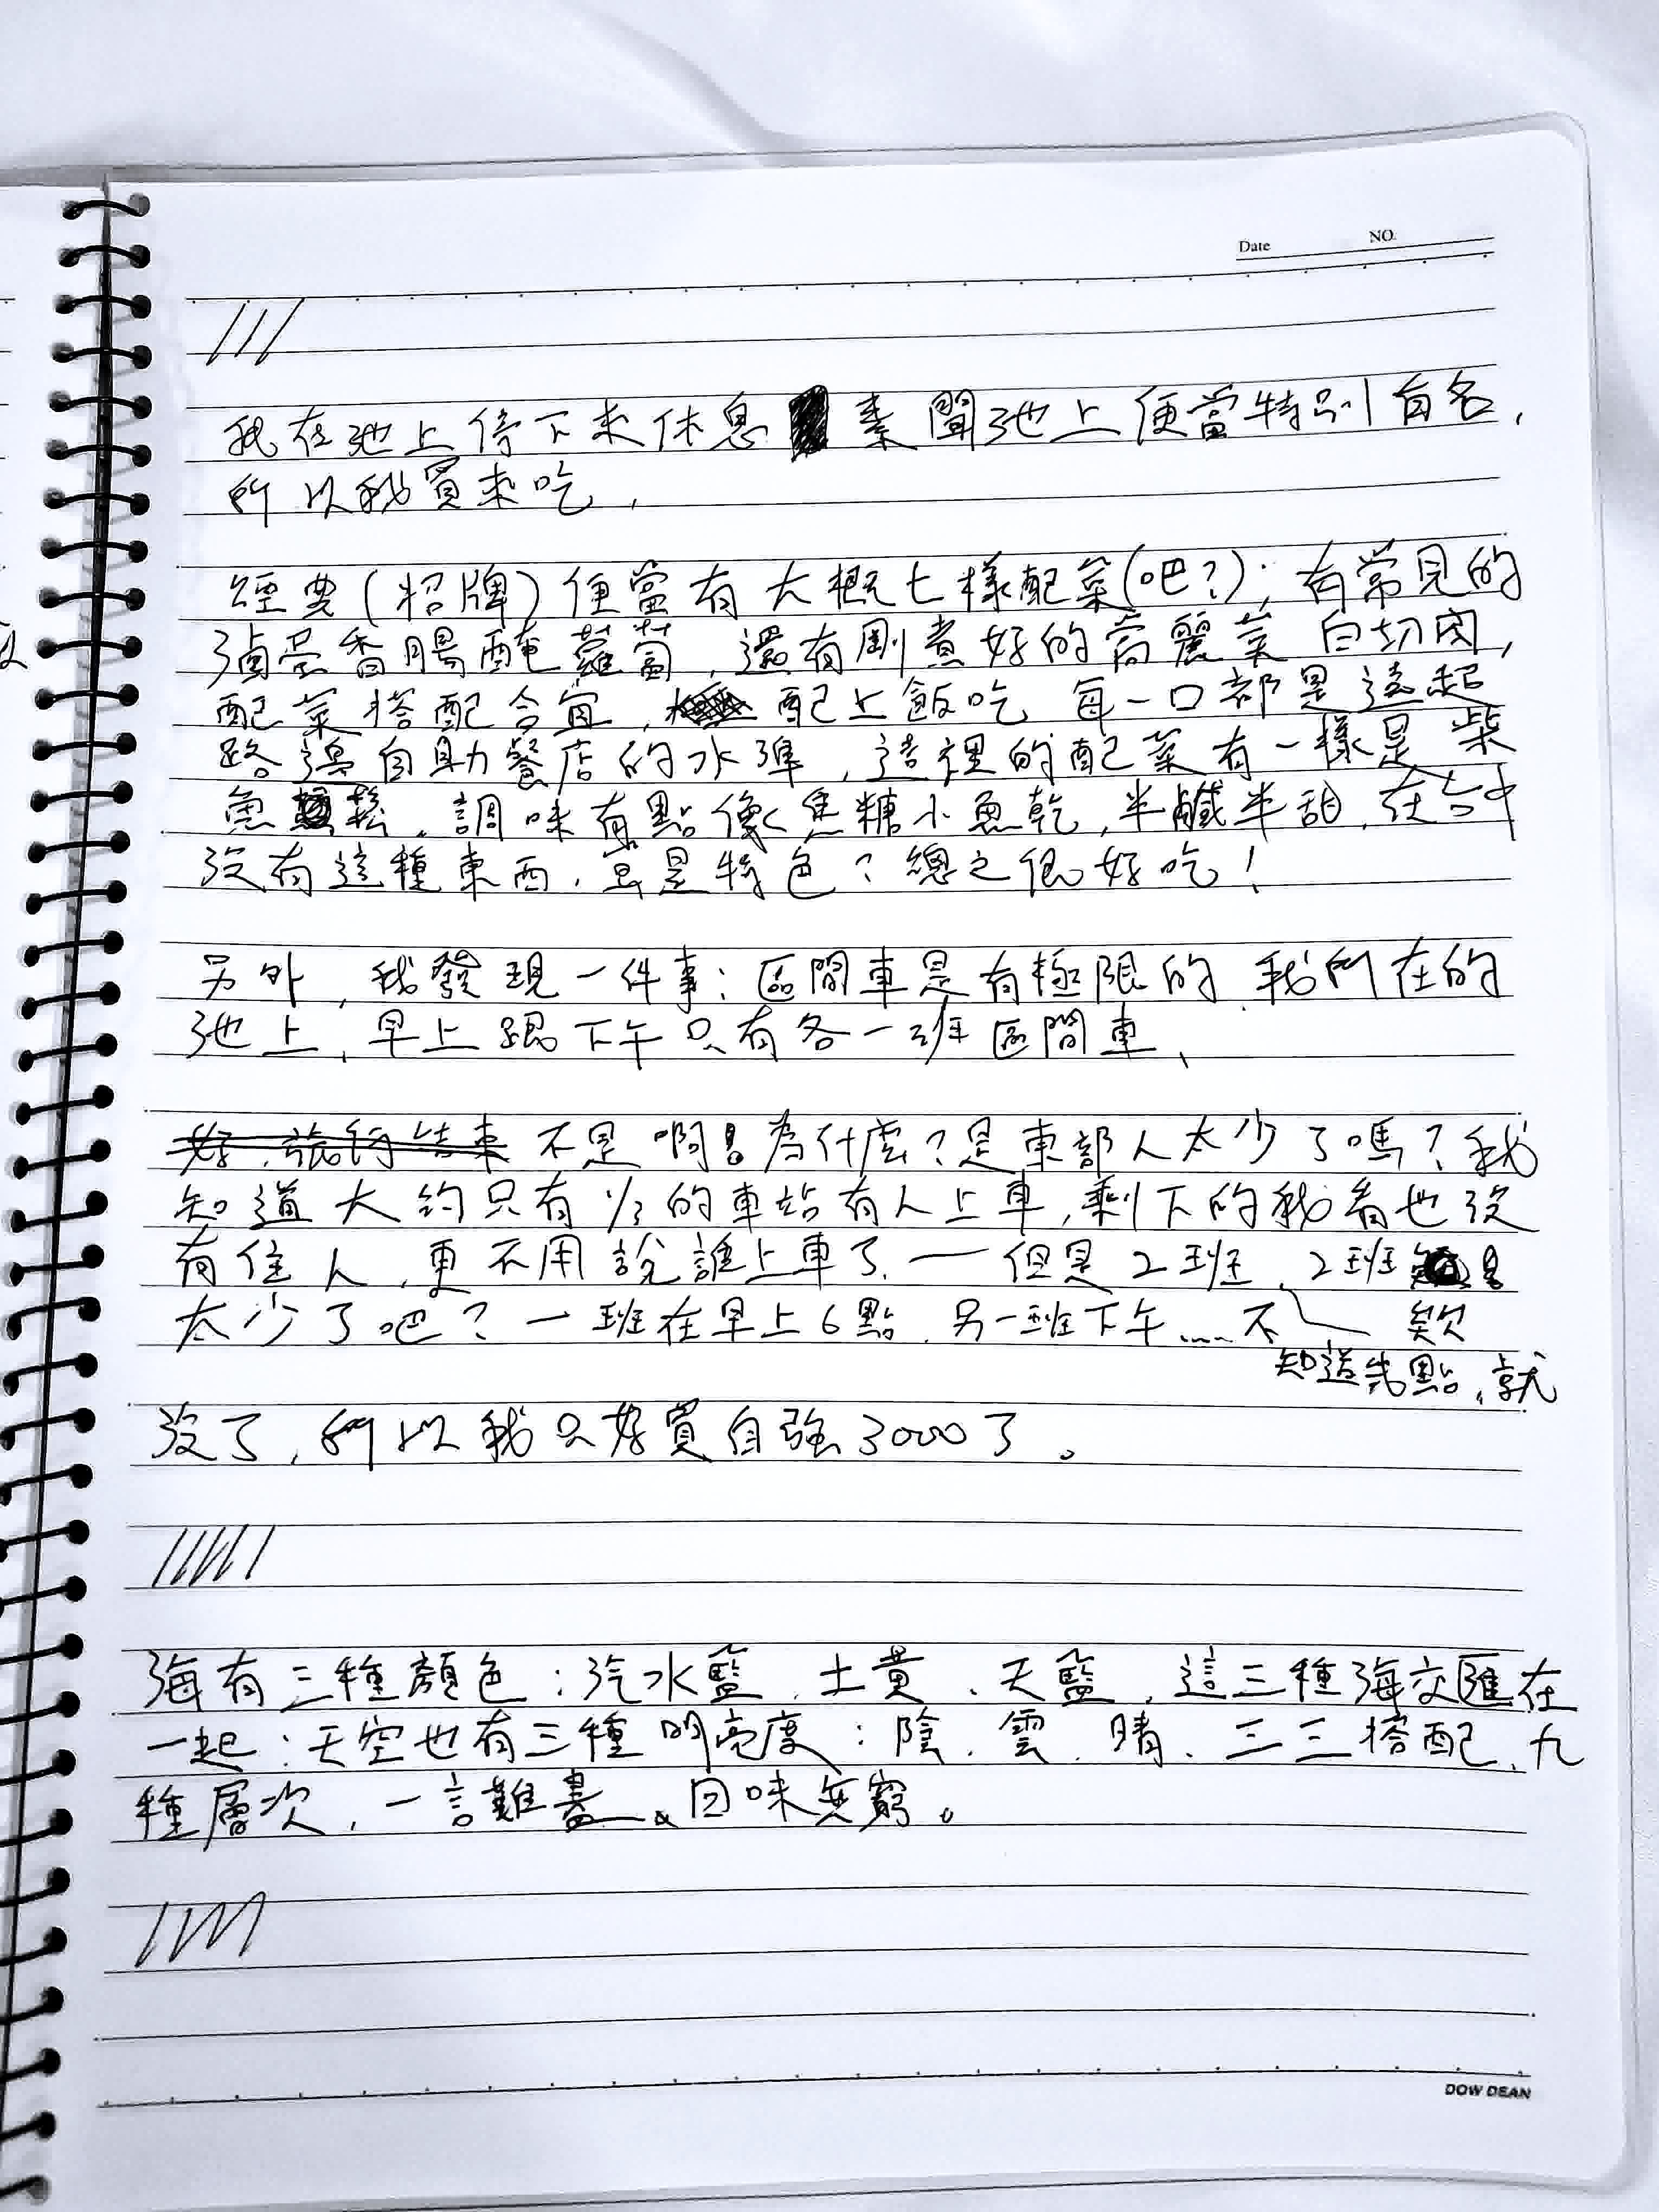 Date NO.
///
我在池上停下來休息 素聞池上便當特別有名,
所以我買來吃,
經典(招牌)便當有大概七樣配菜(吧?);有常見的
滷蛋香腸醃蘿蔔,還有剛煮好的高麗菜 白切肉,
配菜搭配合宜, 配上飯吃 每一口都是遠起
路邊自助餐店的水準,這裡的配菜有一樣是柴
魚鬆,調味有點像焦糖小魚乾,半鹹半甜,在台中
沒有這種東西,算是特色?總之很好吃!
另外,我發現一件事:區間車是有極限的,我所在的
池上,早上跟下午只有各一班區間車、
好,旅行結束 不是啊!為什麼?是東部人太少了嗎?我
知道大約只有1/3的車站有人上車,剩下的我看也沒
有住人,更不用說誰上車了,一但是2班,2班是
太少了吧?一班在早上6點,另一班下午……不 欸
知道幾點,就
沒了,所以我只好買自強3000了。
//////
海有三種顏色:汽水藍、土黃、天藍,這三種海交匯在
一起;天空也有三種明亮度:陰、雲、晴、三三搭配、九
種層次,一言難盡、回味無窮。
DOW DEAN